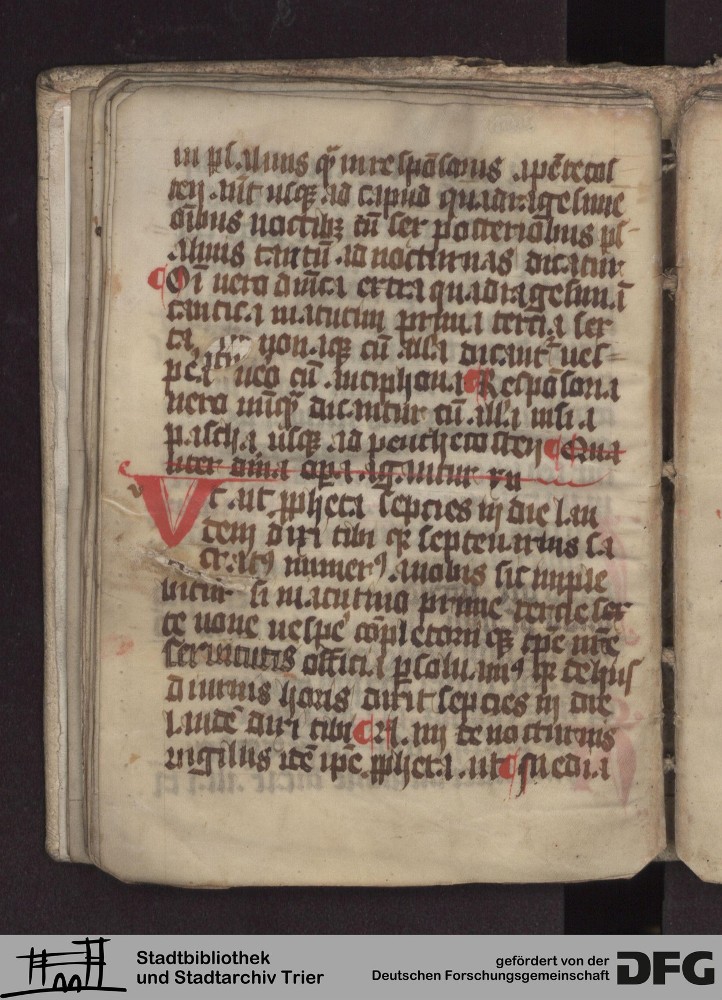 in psalmis q̄ in respōsoriis . a pētecos
ten . aūt usq; ad capud quadragesime
oībus noctibꝫ cū sex posterioribus ps
almis tantū ad nocturnas dicatur
Oī vero dn̄ica extra quadragesimā
cantica matutini prima tercia sex
ta nonaq; cū all'a dicant' ves=
pera vero cū antiphona Respōsoria
vero nūqͣ dicantur cū all'a nisi a
pascha usq; ad penthecosten Qua
liter diuīa opera agantur xvi
Vt ait ꝓpheta septies in die lau
dem dixi tibi qui septenarius sa
cratꝰ numerꝰ a nobis sic imple
bitur si matutino prime tercie sex
te none vespe completorii q; tp̄e nr̄e
servitutis officia ꝑsoluamꝰ qr de hijs
diurnis horis dixit septies in die
laudē dixi tibi Nā in de nocturnis
vigiliis itē ip̄e ꝓpheta ait media
Stadtbibliothek
und Stadtarchiv Trier
gefördert von der
Deutschen Forschungsgemeinschaft
DFG